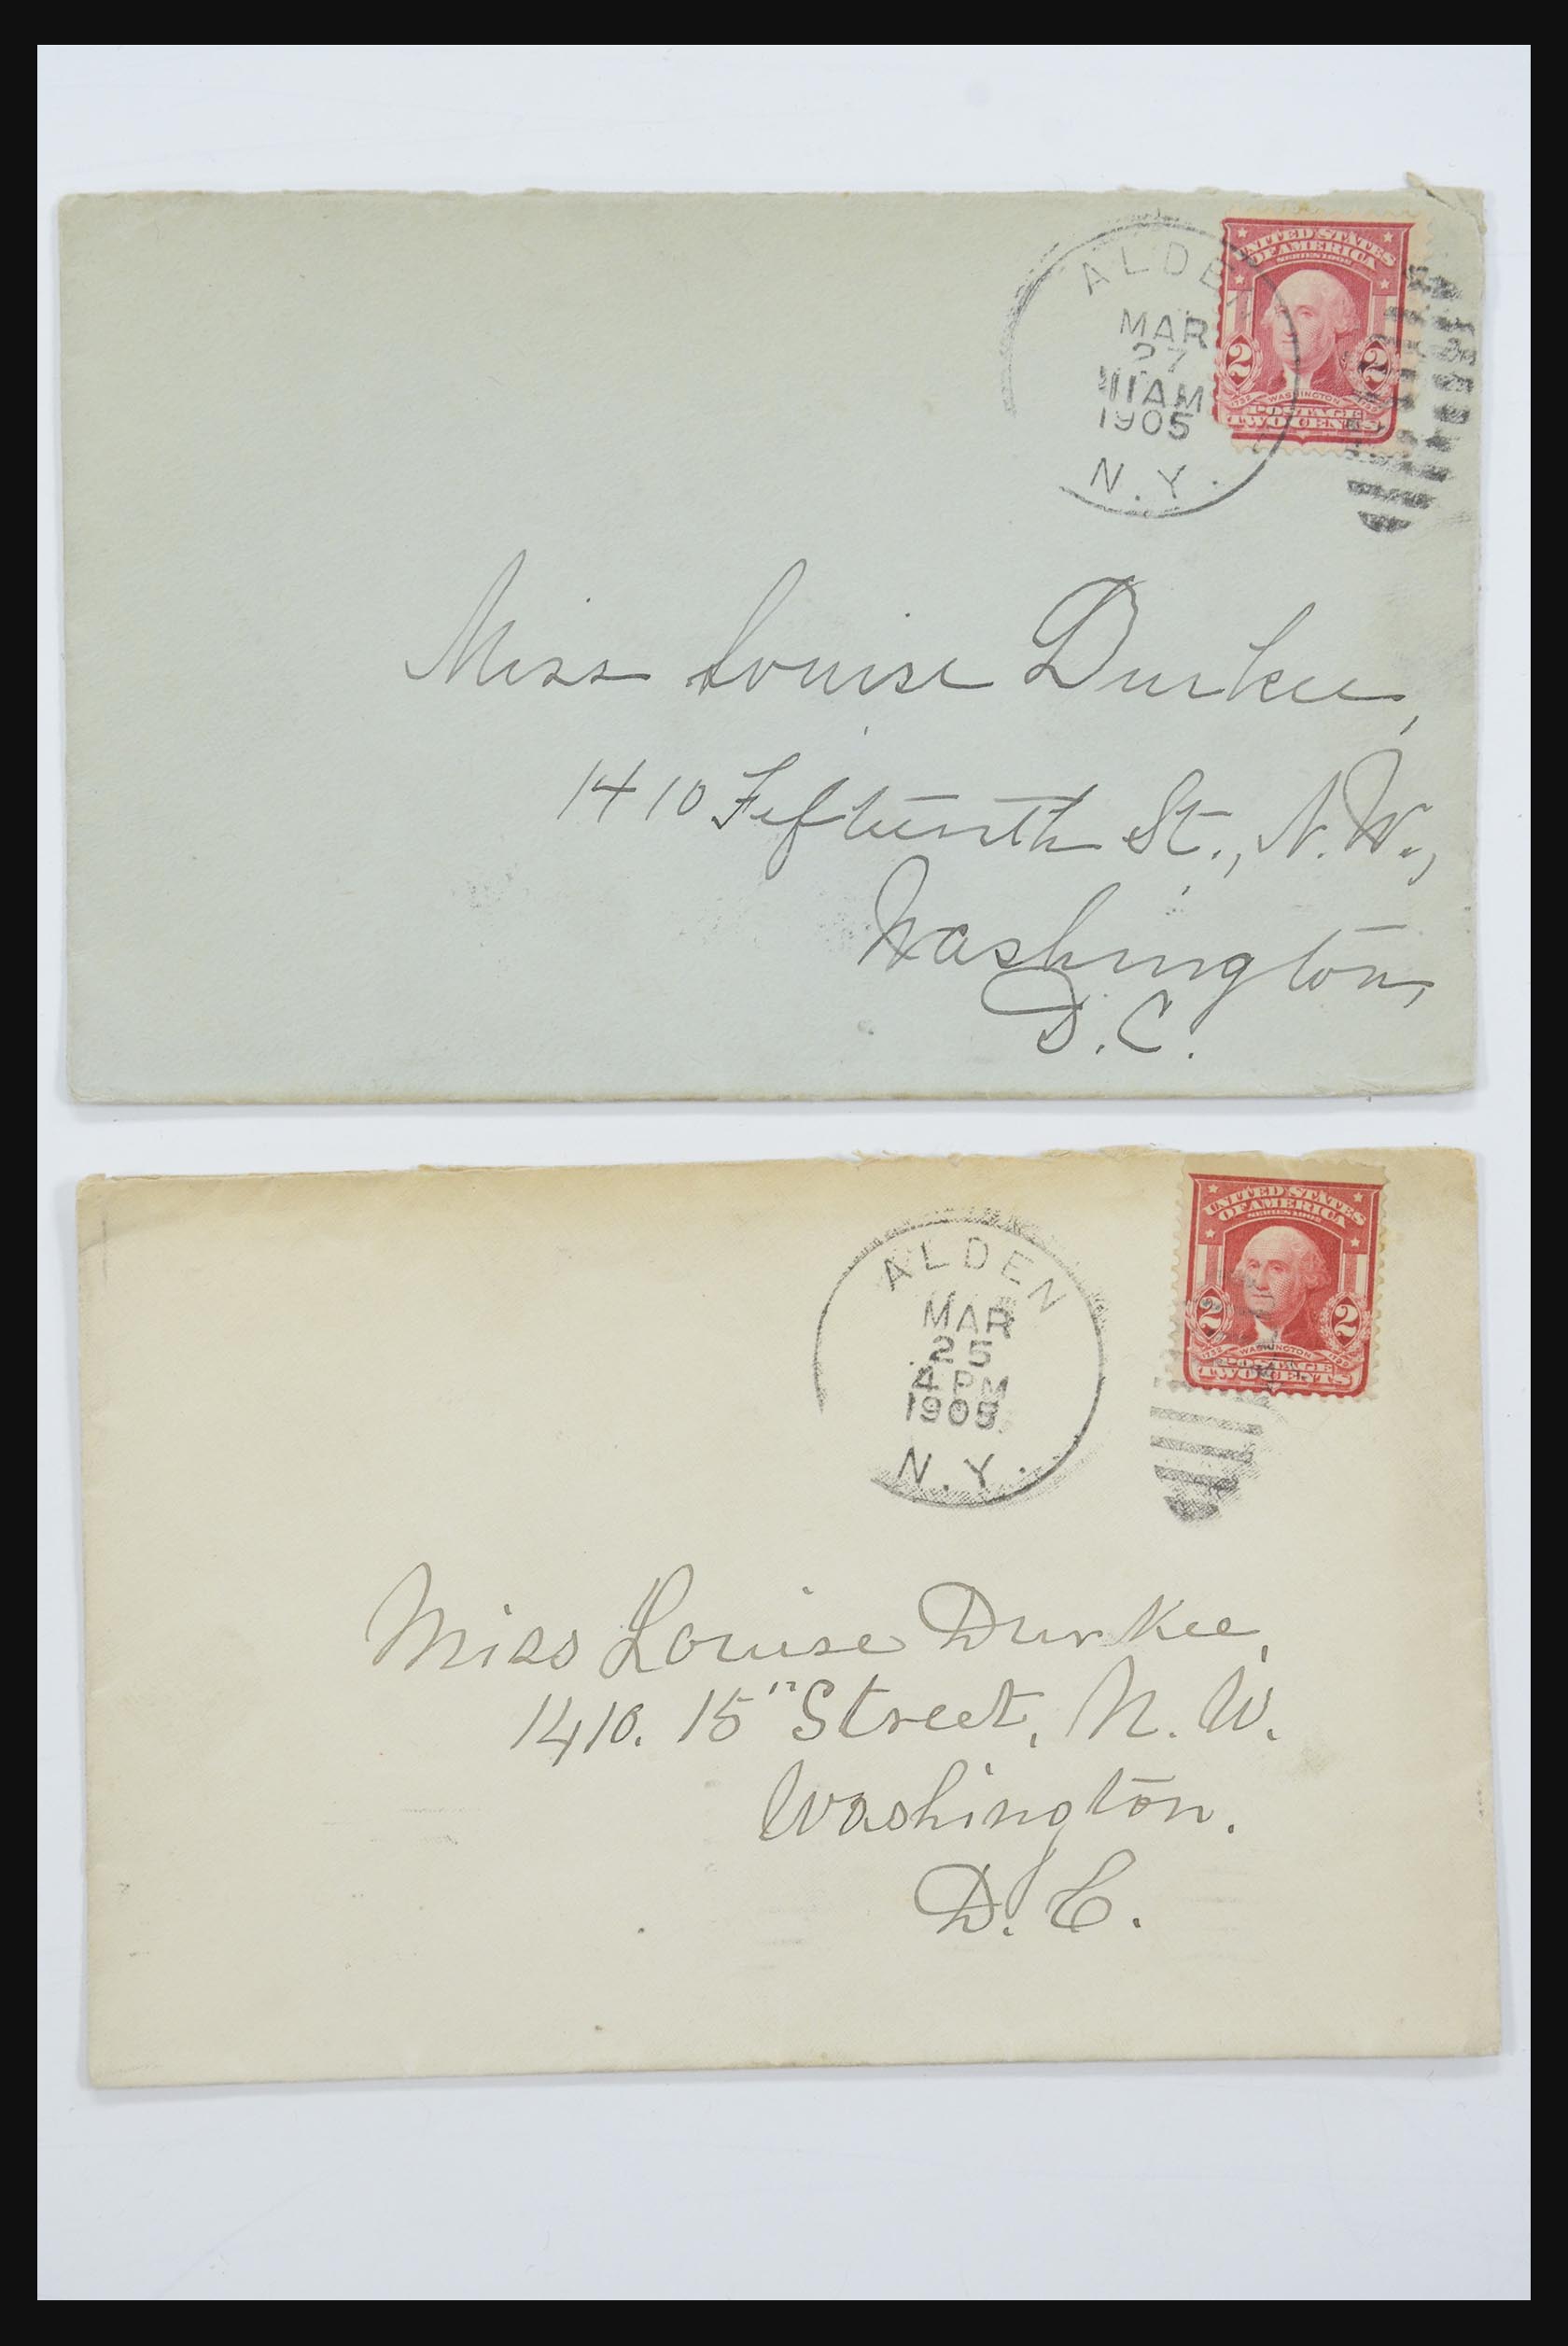 ALDEN
MAR
27
11AM
1905
N.Y.
UNITED STATES
OF AMERICA
SERIES 1902
2 2
WASHINGTON
POSTAGE
TWO CENTS
Miss Louise Durkee,
1410 Fifteenth St., N.W.,
Washington,
D.C.
ALDEN
MAR
25
4 PM
1905
N.Y.
UNITED STATES
OF AMERICA
SERIES 1902
2 2
1732 WASHINGTON 1799
POSTAGE
TWO CENTS
Miss Louise Durkee,
1410. 15" Street, N. W.
Washington.
D. C.